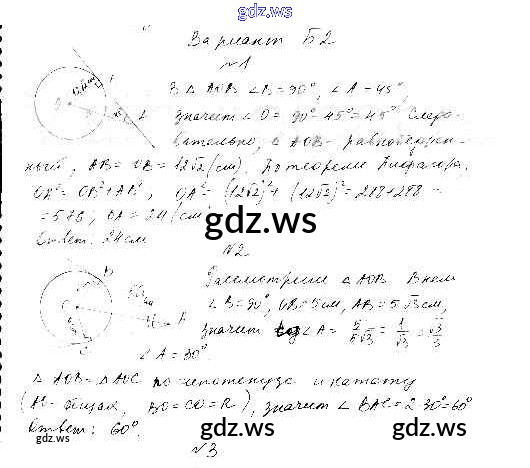 gdz.ws
Вариант Б2
№1
В △ AOB ∠B = 90°, ∠A = 45°,
значит ∠O = 90° - 45° = 45°. Следо-
вательно, △ AOB - равнобедрен-
ный, AB = OB = 12√2 (см). По теореме Пифагора,
OA² = OB² + AB², OA² = (12√2)² + (12√2)² = 288 + 288 =
= 576, OA = 24 (см)
Ответ: 24 см
gdz.ws
№2
Рассмотрим △ AOB. В нем
∠B = 90°, OB = 5 см, AB = 5√3 см,
значит ∠A = 5/5√3 = 1/√3 = √3/3
∠A = 30°
△ AOB = △ AOC по гипотенузе и катету
(AO - общая, BO = CO = R), значит ∠BAC = 2·30° = 60°
Ответ: 60°.
gdz.ws gdz.ws gdz.ws
№3